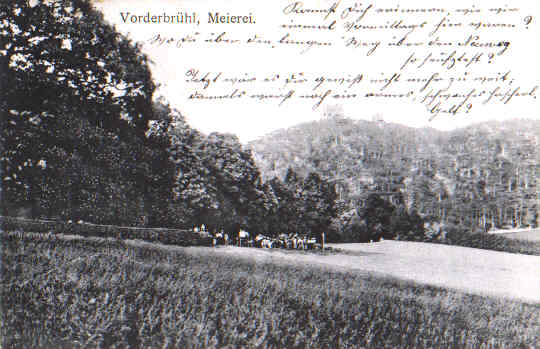 Vorderbrühl, Meierei.
Kannst Dich erinnern, wie wir
einmal Vormittags hier waren?
Wo du über den langen Weg über den Neuweg
so seufztest?
Jetzt wär es Dir gewiß nicht mehr zu weit,
damals warst noch ein armes, schwaches Hascherl.
Gelt?